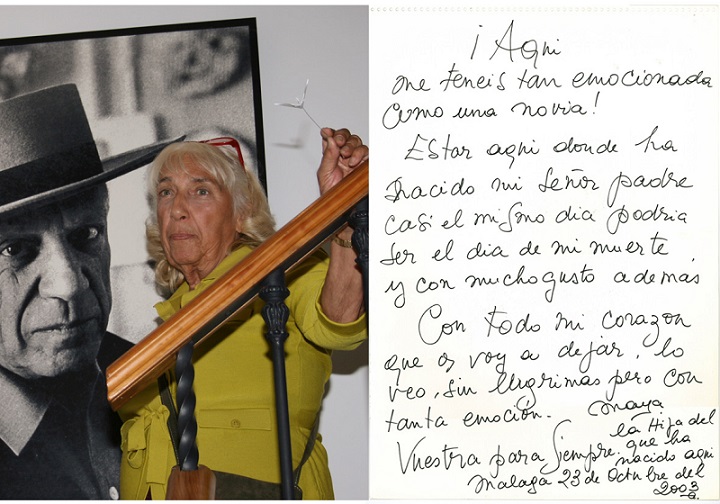 ¡ Aqui
me teneis tan emocionada
como una novia!
Estar aqui donde ha
nacido mi Señor padre
casi el mismo dia podria
ser el dia de mi muerte,
y con mucho gusto ademas
Con todo mi corazon
que os voy a dejar, lo
veo, sin lagrimas pero con
tanta emoción.
Maya
la Hija del
que ha
nacido aqui
Vuestra para Siempre.
Malaga 23 de Octubre del
2003